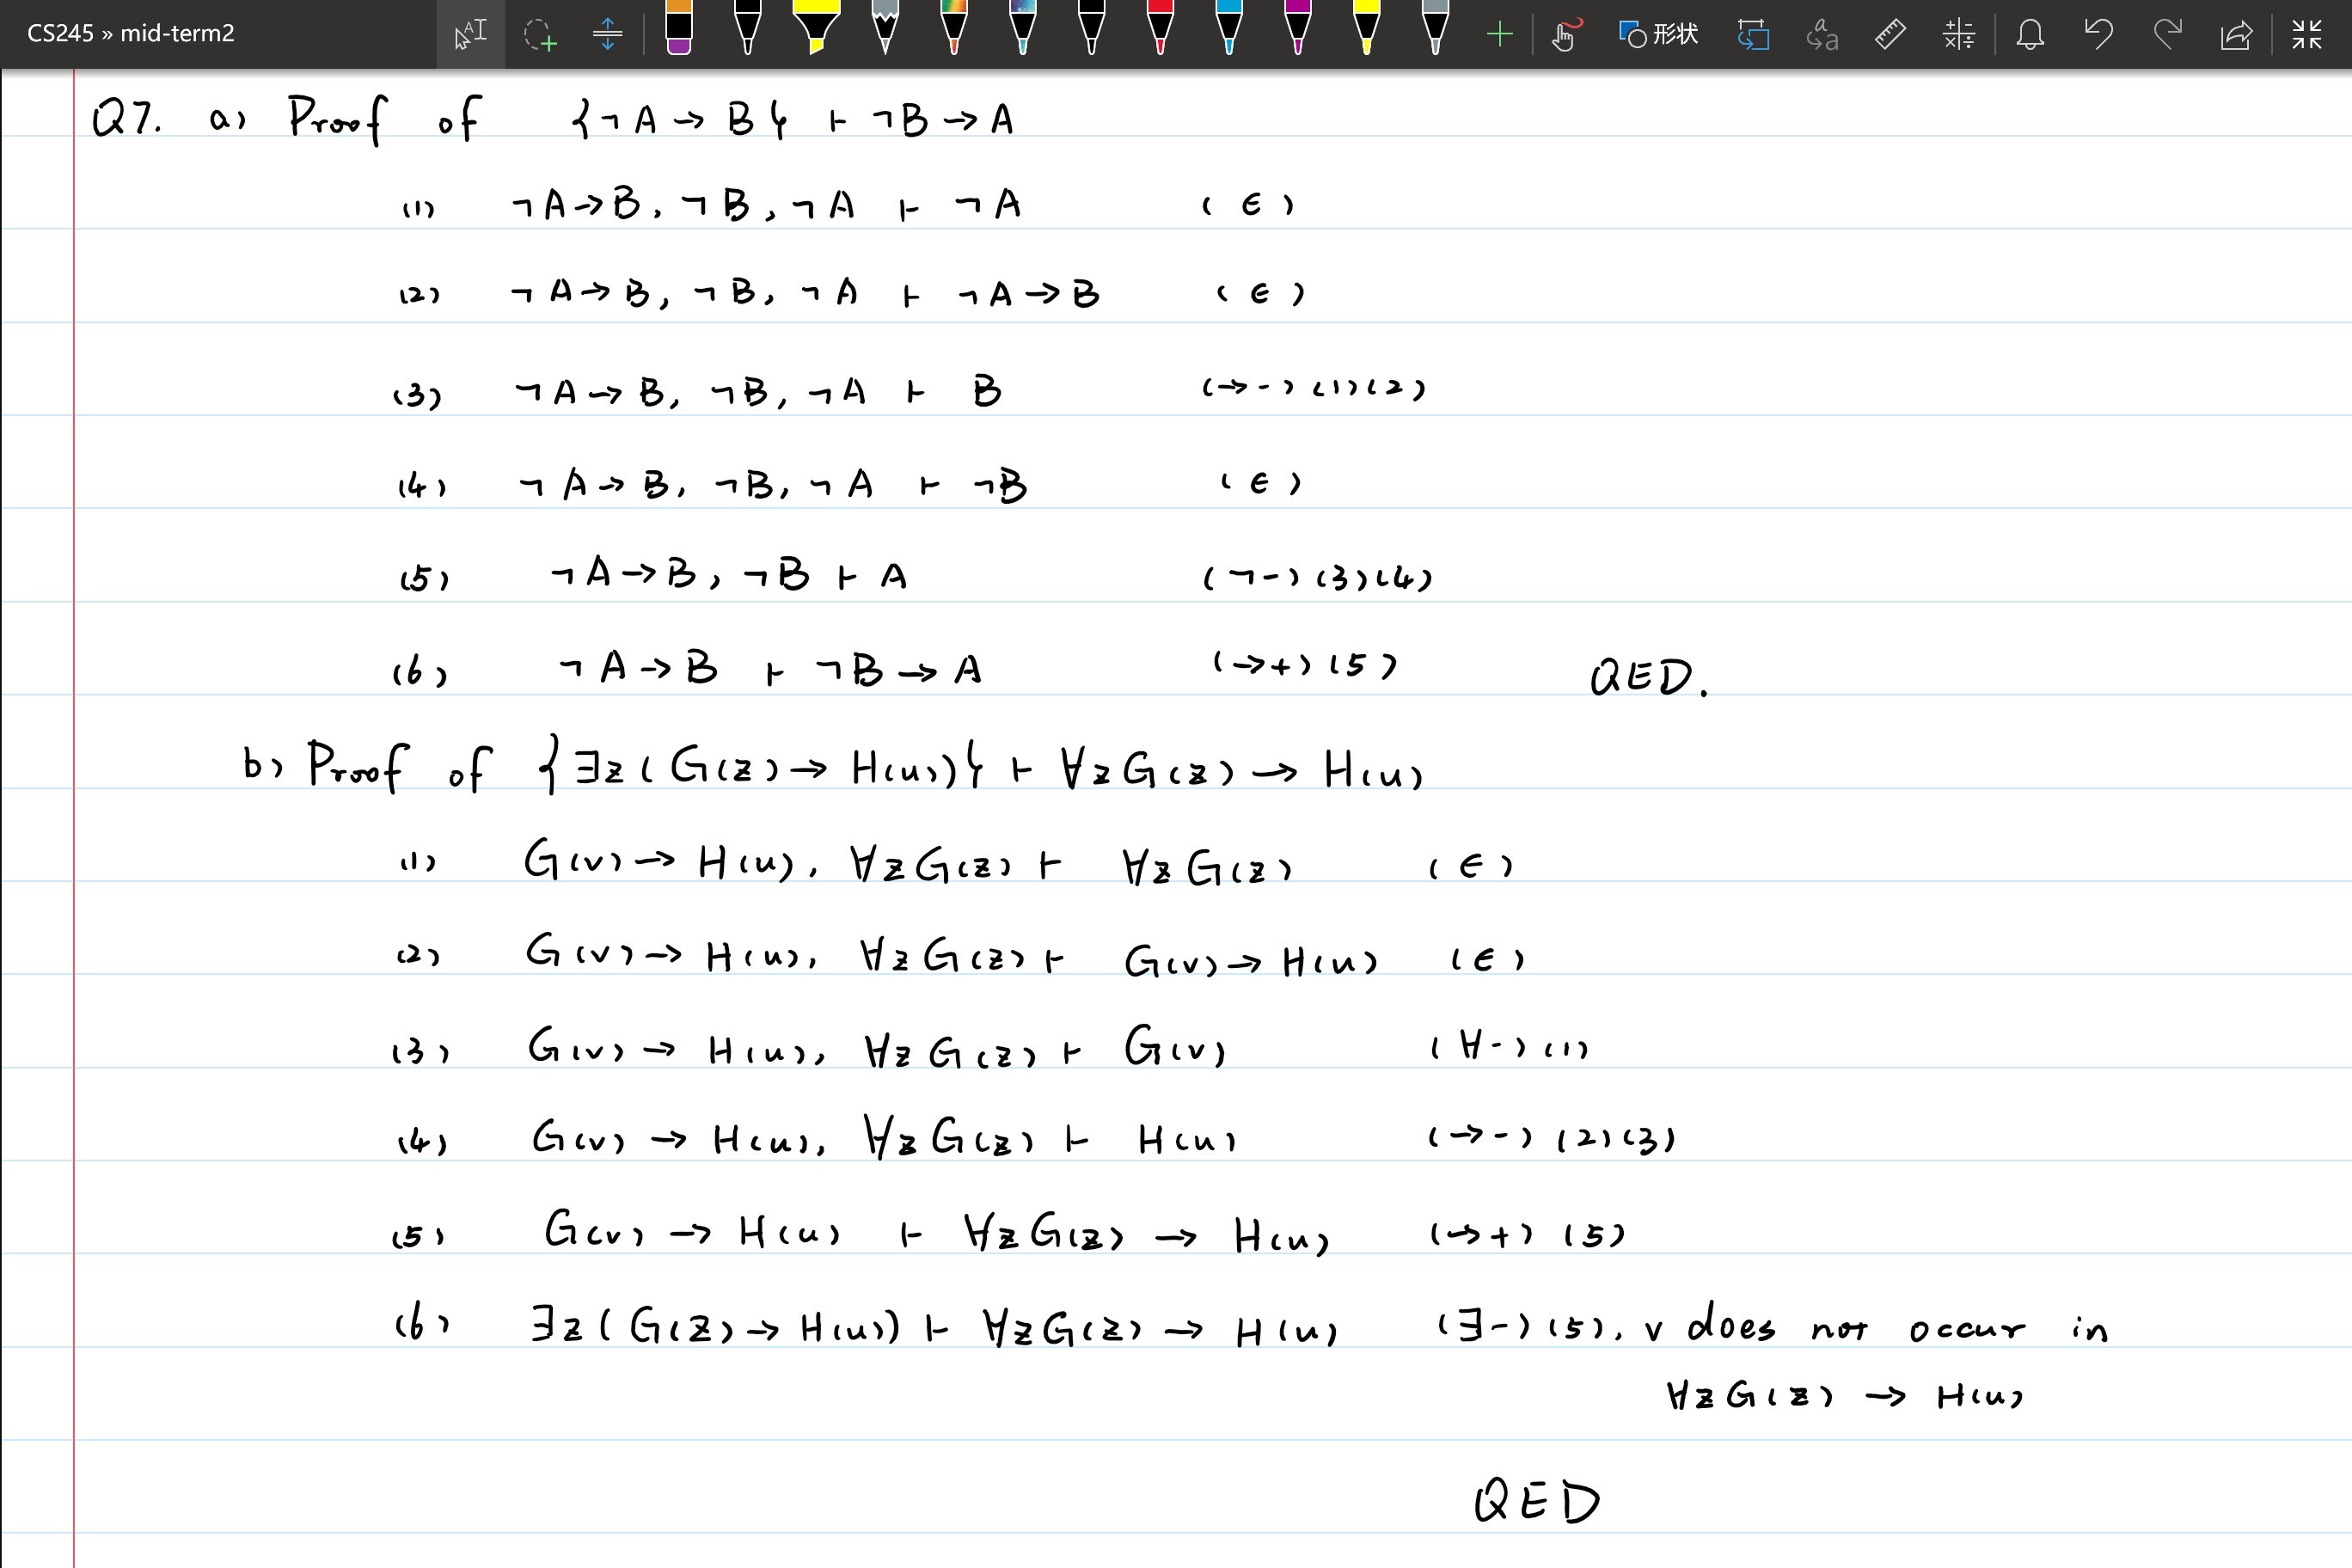 CS245 » mid-term2
形状
Q7. a) Proof of {¬A→B} ⊢ ¬B→A
(1) ¬A→B, ¬B, ¬A ⊢ ¬A (∈)
(2) ¬A→B, ¬B, ¬A ⊢ ¬A→B (∈)
(3) ¬A→B, ¬B, ¬A ⊢ B (→-) (1)(2)
(4) ¬A→B, ¬B, ¬A ⊢ ¬B (∈)
(5) ¬A→B, ¬B ⊢ A (¬-) (3)(4)
(6) ¬A→B ⊢ ¬B→A (→+) (5) QED.
b) Proof of {∃z(G(z)→H(u))} ⊢ ∀zG(z)→H(u)
(1) G(v)→H(u), ∀zG(z) ⊢ ∀zG(z) (∈)
(2) G(v)→H(u), ∀zG(z) ⊢ G(v)→H(u) (∈)
(3) G(v)→H(u), ∀zG(z) ⊢ G(v) (∀-) (1)
(4) G(v)→H(u), ∀zG(z) ⊢ H(u) (→-) (2)(3)
(5) G(v)→H(u) ⊢ ∀zG(z)→H(u) (→+) (5)
(6) ∃z(G(z)→H(u)) ⊢ ∀zG(z)→H(u) (∃-) (5), v does not occur in
∀zG(z)→H(u)
QED